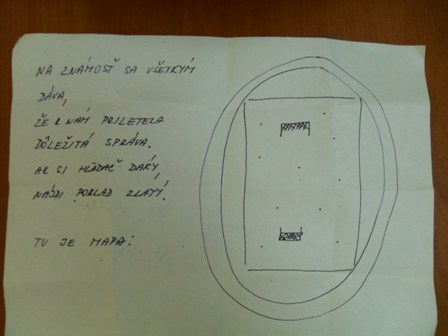 NA ZNÁMOSŤ SA VŠETKÝM
DÁVA,
ŽE K NÁM PRILETELA
DÔLEŽITÁ SPRÁVA.
AK SI HĽADAČ DAKÝ,
NÁJDI POKLAD ZLATÝ.
TU JE MAPA: